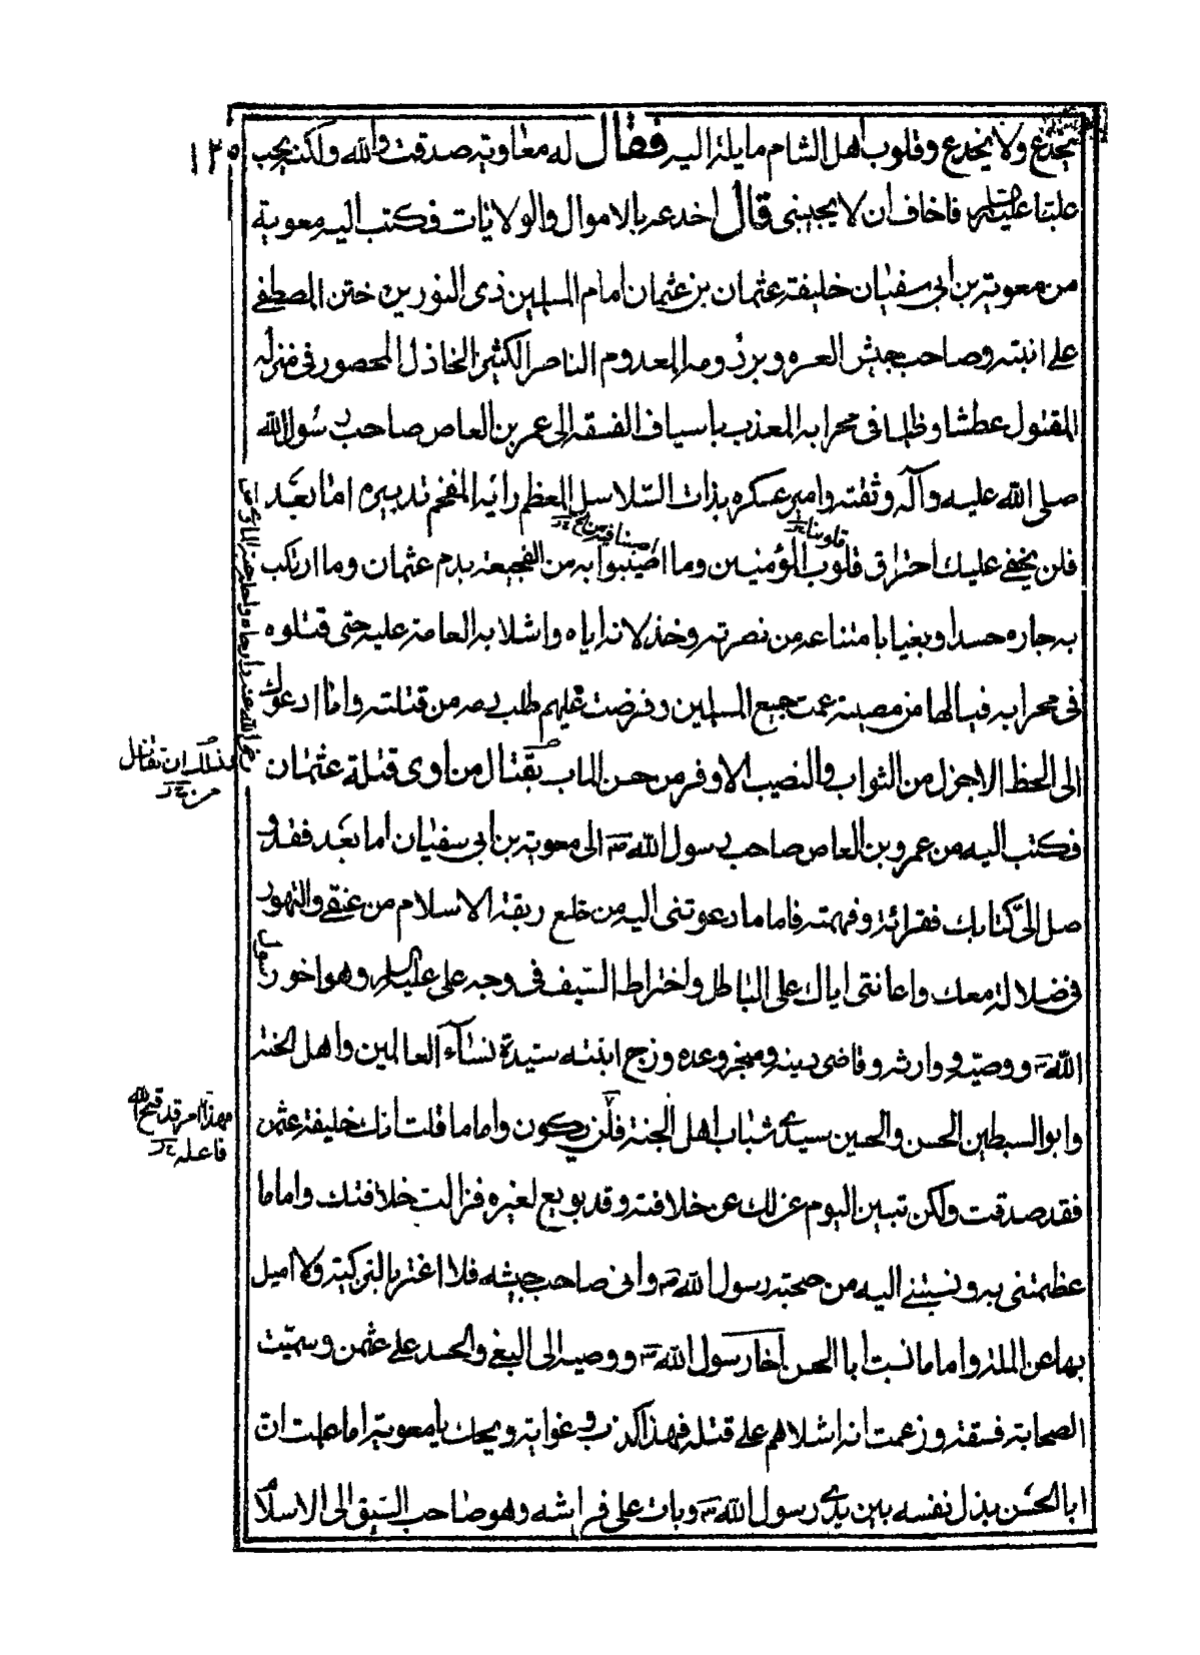 يخدع ولا يخدع وقلوب اهل الشام مايلة اليه فقال له معاوية صدقت والله ولكنه يحب
١٢٥
عليا عليه السلام فاخاف ان لا يجيبنى قال اخدعه بالاموال والولايات فكتب اليه معوية
من معوية بن ابى سفيان خليفة عثمان بن عثمان امام المسلمين ذى النورين ختن المصطفى
على ابنتيه وصاحب جيش العسره وبئر دومه المعدوم الناصر الكثير الخاذل المحصور فى منزله
المقتول عطشا وظلما فى محرابه المعذب باسياف الفسقه الى عمر بن العاص صاحب رسول الله
صلى الله عليه وآله وثقته وامير عسكره بذات السلاسل المعظم رايه المفخم تدبيره اما بعد
فلن يخفى عليك احتراق قلوب المؤمنين وما اصيبوا به من الفجيعة بدم عثمان وما ارتكب
به جاره حسدا وبغيا بامتناعه من نصرته وخذلانه اياه واشلا به العامة عليه حتى قتلوه
فى محرابه فيالها من مصيبة عمت جميع المسلمين وفرضت عليهم طلب دمه من قتلته واما ادعوك
الى الحظ الاجزل من الثواب والنصيب الاوفر من حسن الماب بقتال من اوى قتلة عثمان
فكتب اليه من عمرو بن العاص صاحب رسول الله ص الى معوية بن ابى سفيان اما بعد فقد و
صل الىّ كتابك فقرائة وفهمته فاما ما دعوتنى اليه من خلع ربقة الاسلام من عنقى والتهور
فى ضلالة معك واعانتى اياك على الباطل واختراط السيف فى وجه على عليه السلام وهو اخو رسول
الله ص ووصيه ووارثه وقاضى دينه ومنجز وعده وزوج ابنته سيدة نساء العالمين واهل الجنة
وابو السبطين الحسن والحسين سيدى شباب اهل الجنة فلن يكون واما ما قلت انك خليفة عثمن
فقد صدقت ولكن تبين اليوم عزلك عن خلافته وقد بويع لغيره فزالت خلافتك واما ما
عظمتنى به ونسبتنى اليه من صحبة رسول الله ص وانى صاحب جيشه فلا اغتر بالتزكية ولا اميل
بها عن الملة واما ما نسبت ابا الحسن اخا رسول الله ص ووصيه الى البغى والحسد على عثمن وسميت
الصحابة فسقة وزعمت انه اشلاهم على قتله فهذا كذب وغواية ويحك يا معوية اما علمت ان
ابا الحسن بذل نفسه بين يدى رسول الله ص وبات على فراشه وهو صاحب السبق الى الاسلام